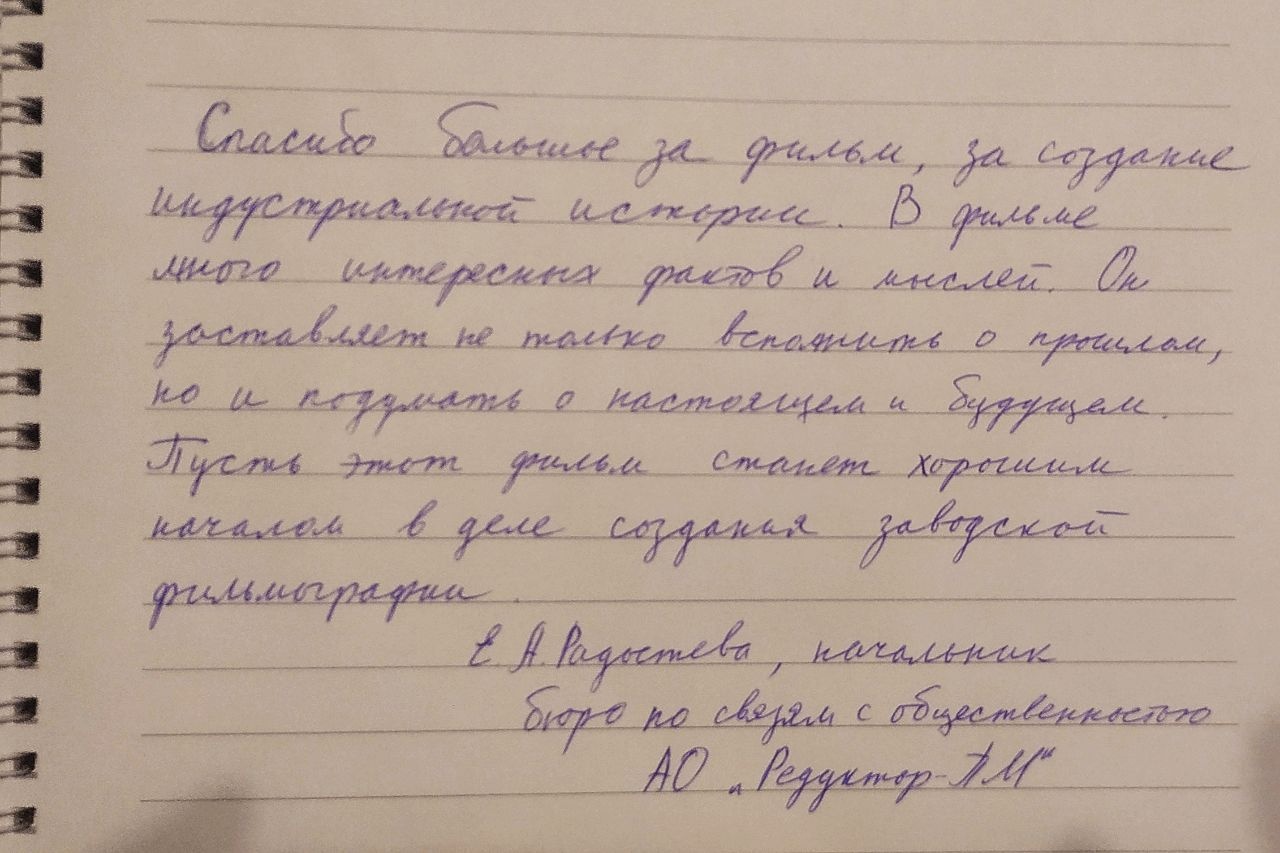 Спасибо большое за фильм, за создание
индустриальной истории. В фильме
много интересных фактов и мыслей. Он
заставляет не только вспомнить о прошлом,
но и подумать о настоящем и будущем.
Пусть этот фильм станет хорошим
началом в деле создания заводской
фильмографии.
Е.А. Радостева, начальник
бюро по связям с общественностью
АО „Редуктор-ПМ"